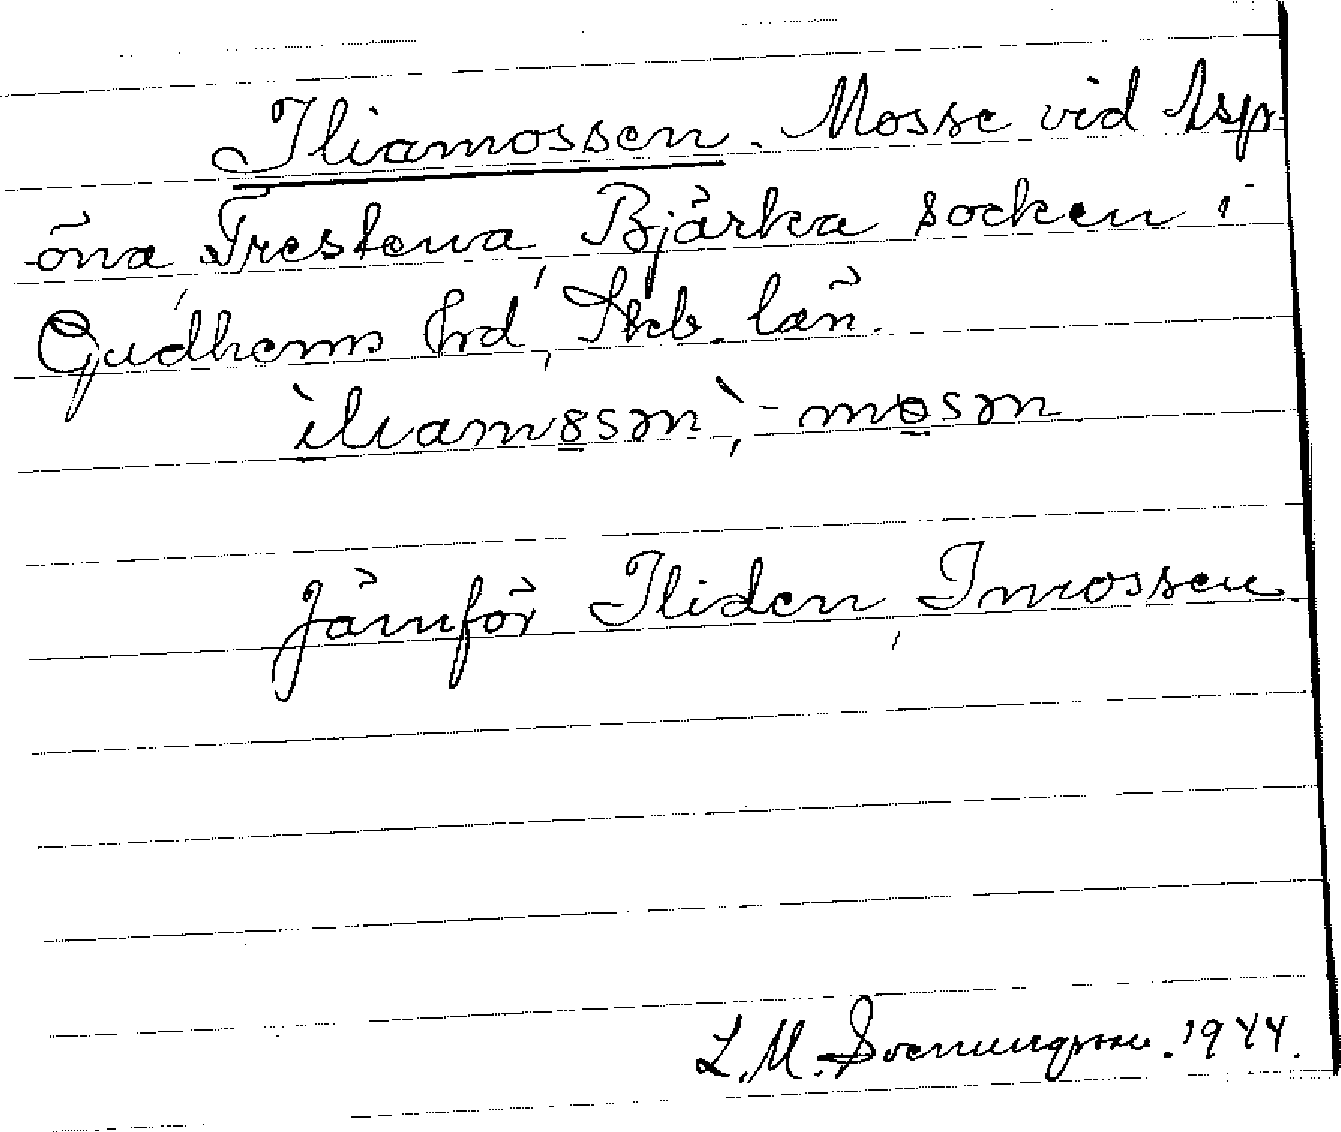 Iliamossen. Mosse vid Asp-
öna, Trestena, Bjärka socken i
Gudhems hrd, Skb. län.
ìliam8sən, -mɵsən
Jämför Iliden, Imossen.
L. M. Svenungsson. 1944.